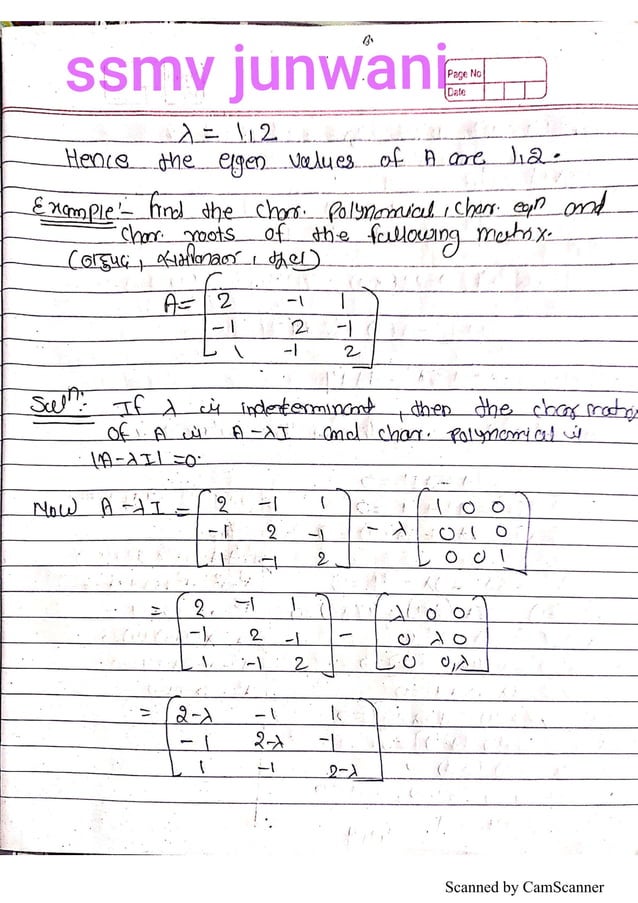 ssmv junwani
Page No
Date
λ = 1,2
Hence the eigen values of A are 1,2.
Example:- find the char. Polynomial, char. eqn and
char. roots of the following matrix.
A = [ 2 -1 1
-1 2 -1
1 -1 2 ]
Soln:- If λ is indeterminant, then the char matrix
of A is A-λI and char. Polynomial is
|A-λI| = 0.
Now A-λI = [ 2 -1 1 ] - λ [ 1 0 0 ]
[ -1 2 -1 ] [ 0 1 0 ]
[ 1 -1 2 ] [ 0 0 1 ]
= [ 2 -1 1 ] - [ λ 0 0 ]
[ -1 2 -1 ] [ 0 λ 0 ]
[ 1 -1 2 ] [ 0 0 λ ]
= [ 2-λ -1 1
-1 2-λ -1
1 -1 2-λ ]
Scanned by CamScanner